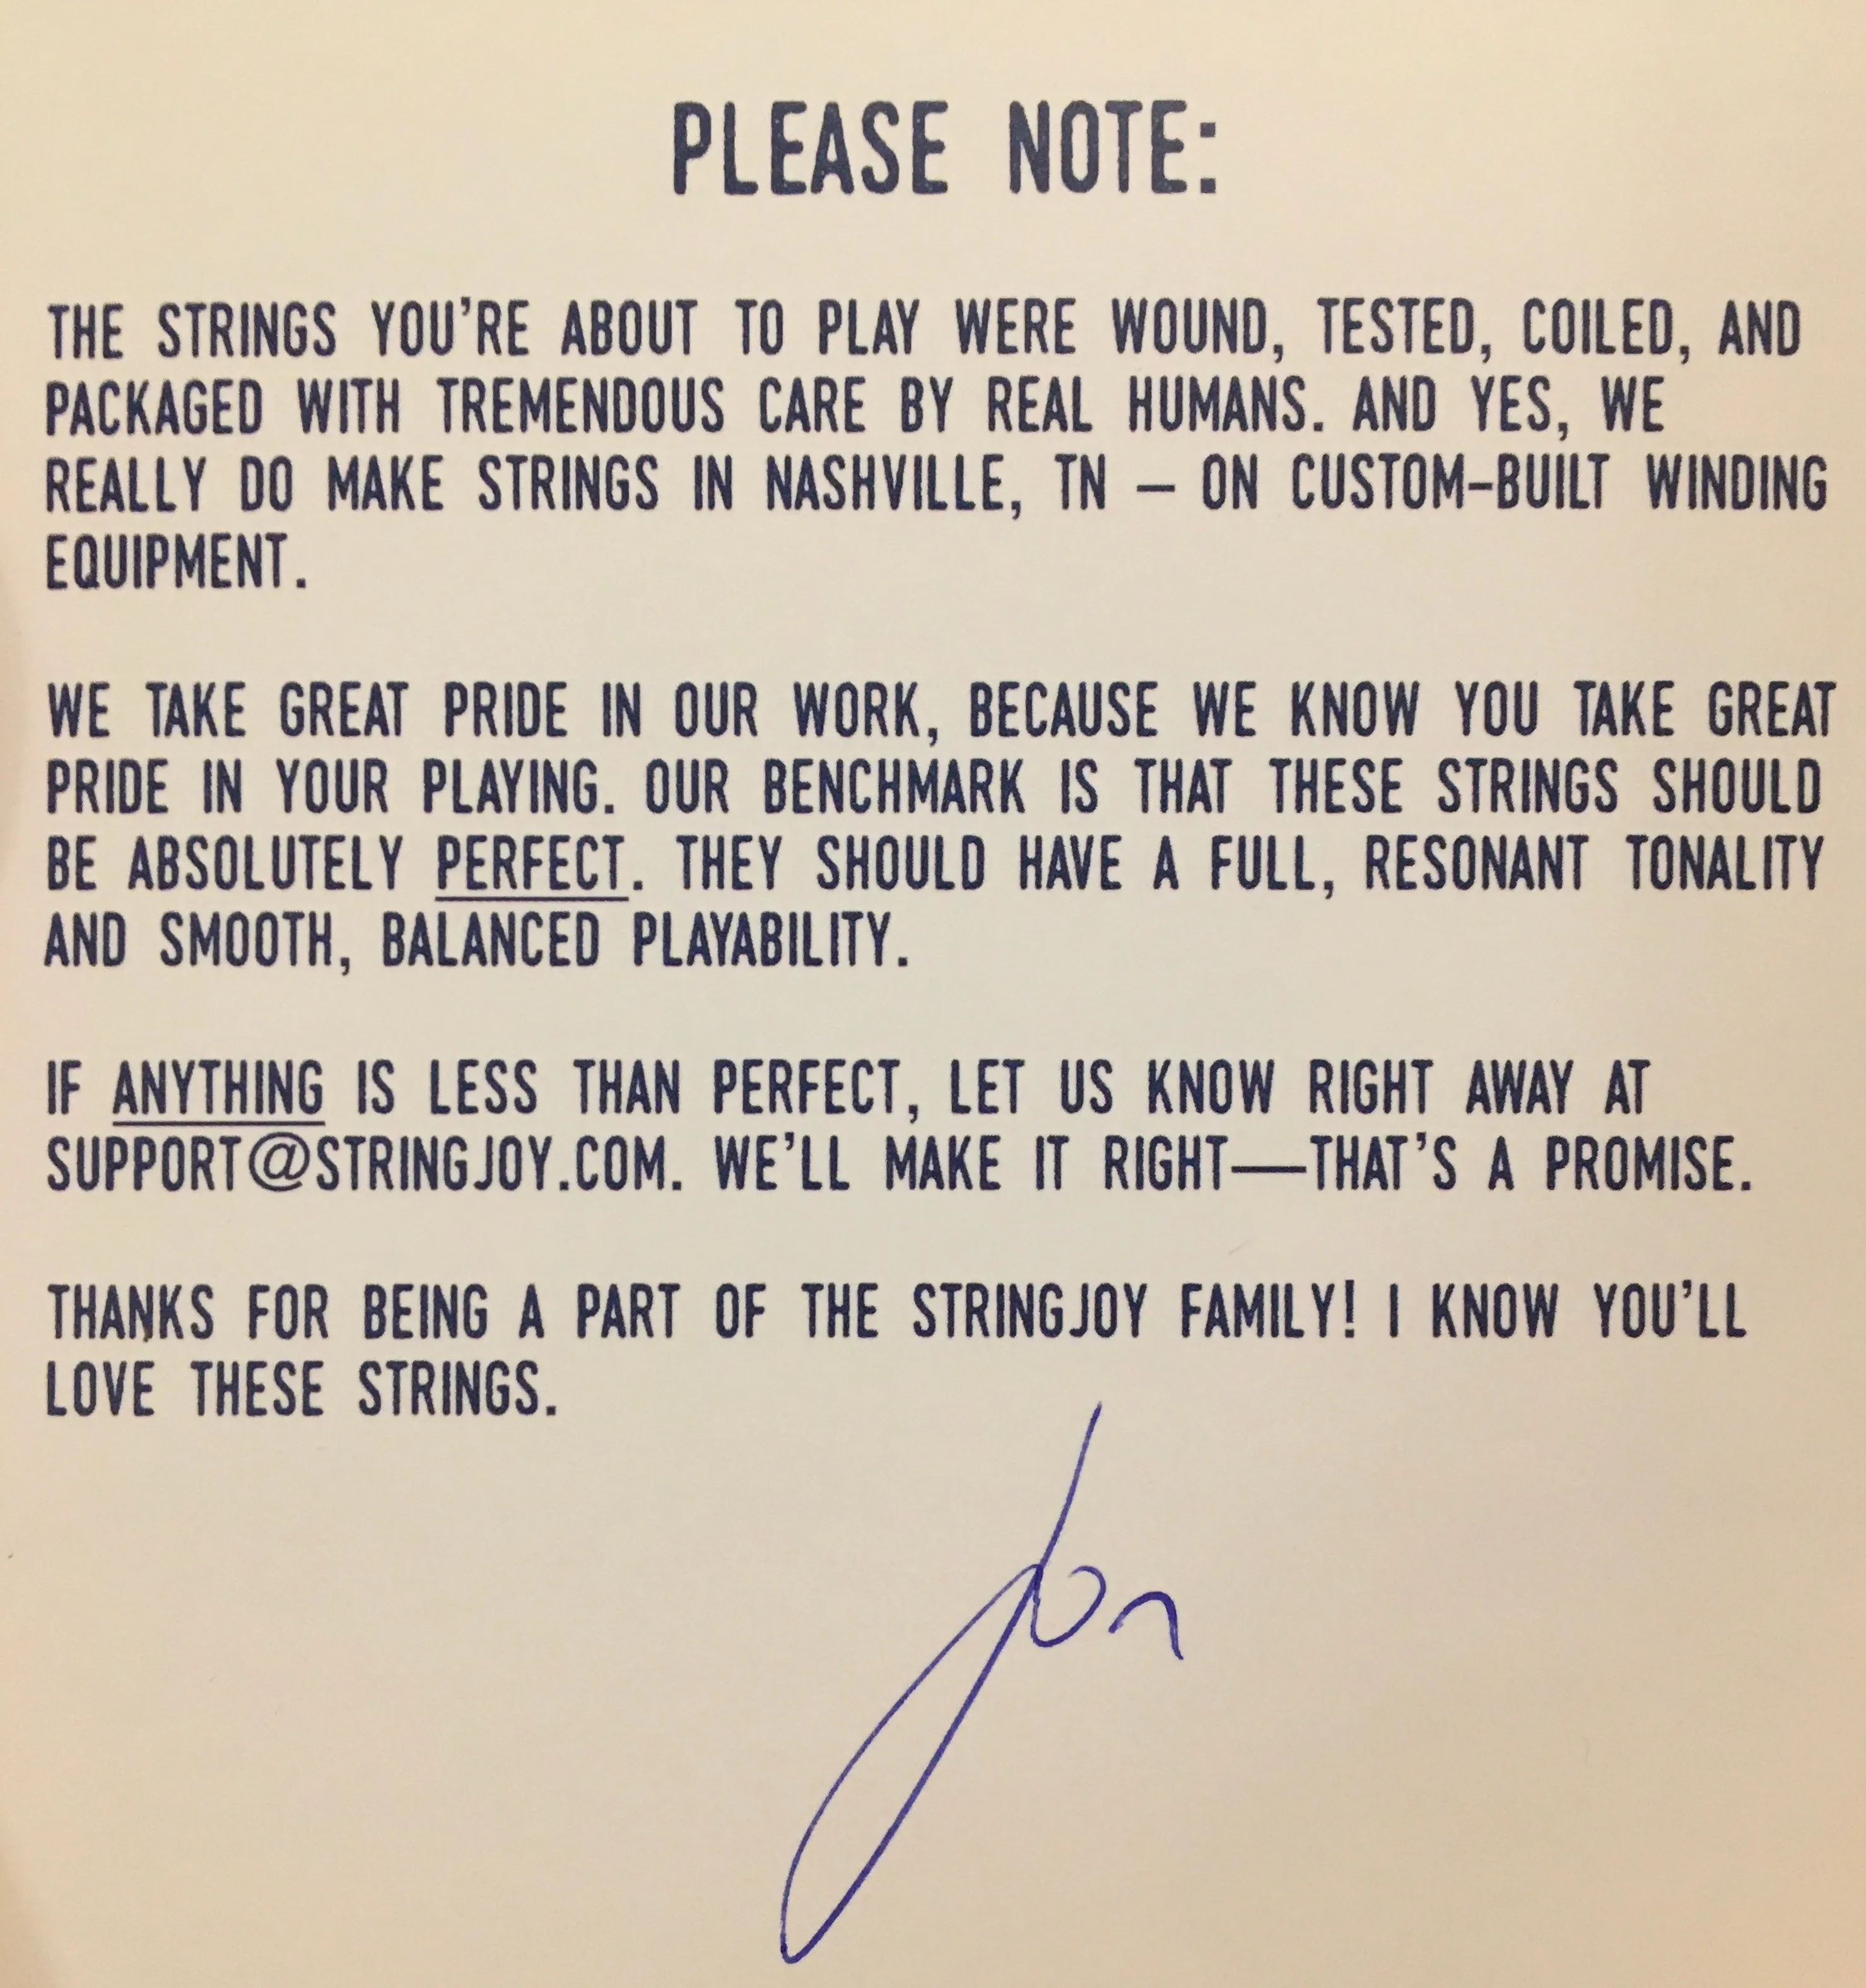 PLEASE NOTE:
THE STRINGS YOU'RE ABOUT TO PLAY WERE WOUND, TESTED, COILED, AND
PACKAGED WITH TREMENDOUS CARE BY REAL HUMANS. AND YES, WE
REALLY DO MAKE STRINGS IN NASHVILLE, TN – ON CUSTOM-BUILT WINDING
EQUIPMENT.
WE TAKE GREAT PRIDE IN OUR WORK, BECAUSE WE KNOW YOU TAKE GREAT
PRIDE IN YOUR PLAYING. OUR BENCHMARK IS THAT THESE STRINGS SHOULD
BE ABSOLUTELY PERFECT. THEY SHOULD HAVE A FULL, RESONANT TONALITY
AND SMOOTH, BALANCED PLAYABILITY.
IF ANYTHING IS LESS THAN PERFECT, LET US KNOW RIGHT AWAY AT
SUPPORT@STRINGJOY.COM. WE'LL MAKE IT RIGHT—THAT'S A PROMISE.
THANKS FOR BEING A PART OF THE STRINGJOY FAMILY! I KNOW YOU'LL
LOVE THESE STRINGS.
Jon